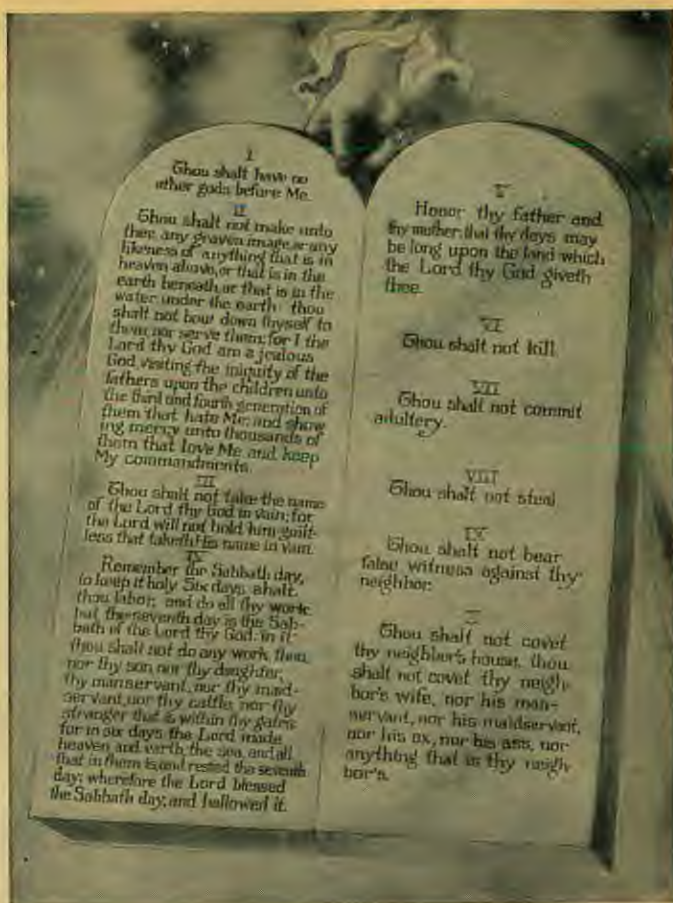 I
Thou shalt have no
other gods before Me.
II
Thou shalt not make unto
thee any graven image, or any
likeness of anything that is in
heaven above, or that is in the
earth beneath, or that is in the
water under the earth: thou
shalt not bow down thyself to
them, nor serve them: for I the
Lord thy God am a jealous
God, visiting the iniquity of the
fathers upon the children unto
the third and fourth generation of
them that hate Me; and show
ing mercy unto thousands of
them that love Me and keep
My commandments.
III
Thou shalt not take the name
of the Lord thy God in vain; for
the Lord will not hold him guilt-
less that taketh His name in vain.
IV
Remember the Sabbath day,
to keep it holy. Six days shalt
thou labor, and do all thy work:
but the seventh day is the Sab-
bath of the Lord thy God: in it
thou shalt not do any work, thou,
nor thy son, nor thy daughter,
thy manservant, nor thy maid-
servant, nor thy cattle, nor thy
stranger that is within thy gates:
for in six days the Lord made
heaven and earth, the sea, and all
that in them is, and rested the seventh
day; wherefore the Lord blessed
the Sabbath day, and hallowed it.
V
Honor thy father and
thy mother: that thy days may
be long upon the land which
the Lord thy God giveth
thee.
VI
Thou shalt not kill
VII
Thou shalt not commit
adultery.
VIII
Thou shalt not steal
IX
Thou shalt not bear
false witness against thy
neighbor.
X
Thou shalt not covet
thy neighbor's house, thou
shalt not covet thy neigh-
bor's wife, nor his man-
servant, nor his maidservant,
nor his ox, nor his ass, nor
anything that is thy neigh-
bor's.